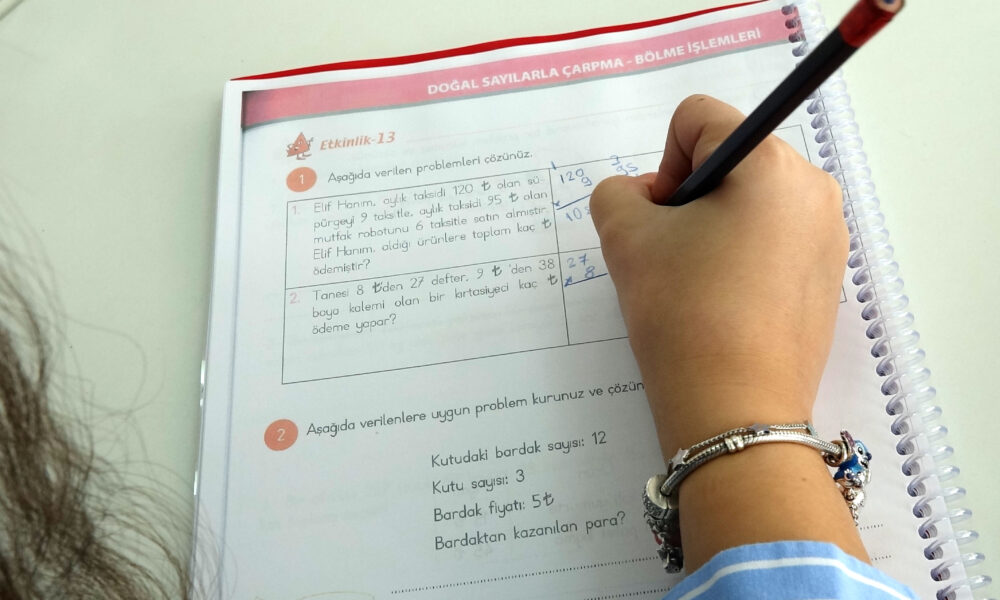 DOĞAL SAYILARLA ÇARPMA - BÖLME İŞLEMLERİ
Etkinlik-13
1 Aşağıda verilen problemleri çözünüz.
1. Elif Hanım, aylık taksidi 120 ₺ olan sü-
pürgeyi 9 taksitle, aylık taksidi 95 ₺ olan
mutfak robotunu 6 taksitle satın almıştır.
Elif Hanım, aldığı ürünlere toplam kaç ₺
ödemiştir?
120
9
95
2. Tanesi 8 ₺'den 27 defter, 9 ₺ 'den 38
boya kalemi olan bir kırtasiyeci kaç ₺
ödeme yapar?
27
x 8
2 Aşağıda verilenlere uygun problem kurunuz ve
Kutudaki bardak sayısı: 12
Kutu sayısı: 3
Bardak fiyatı: 5₺
Bardaktan kazanılan para?